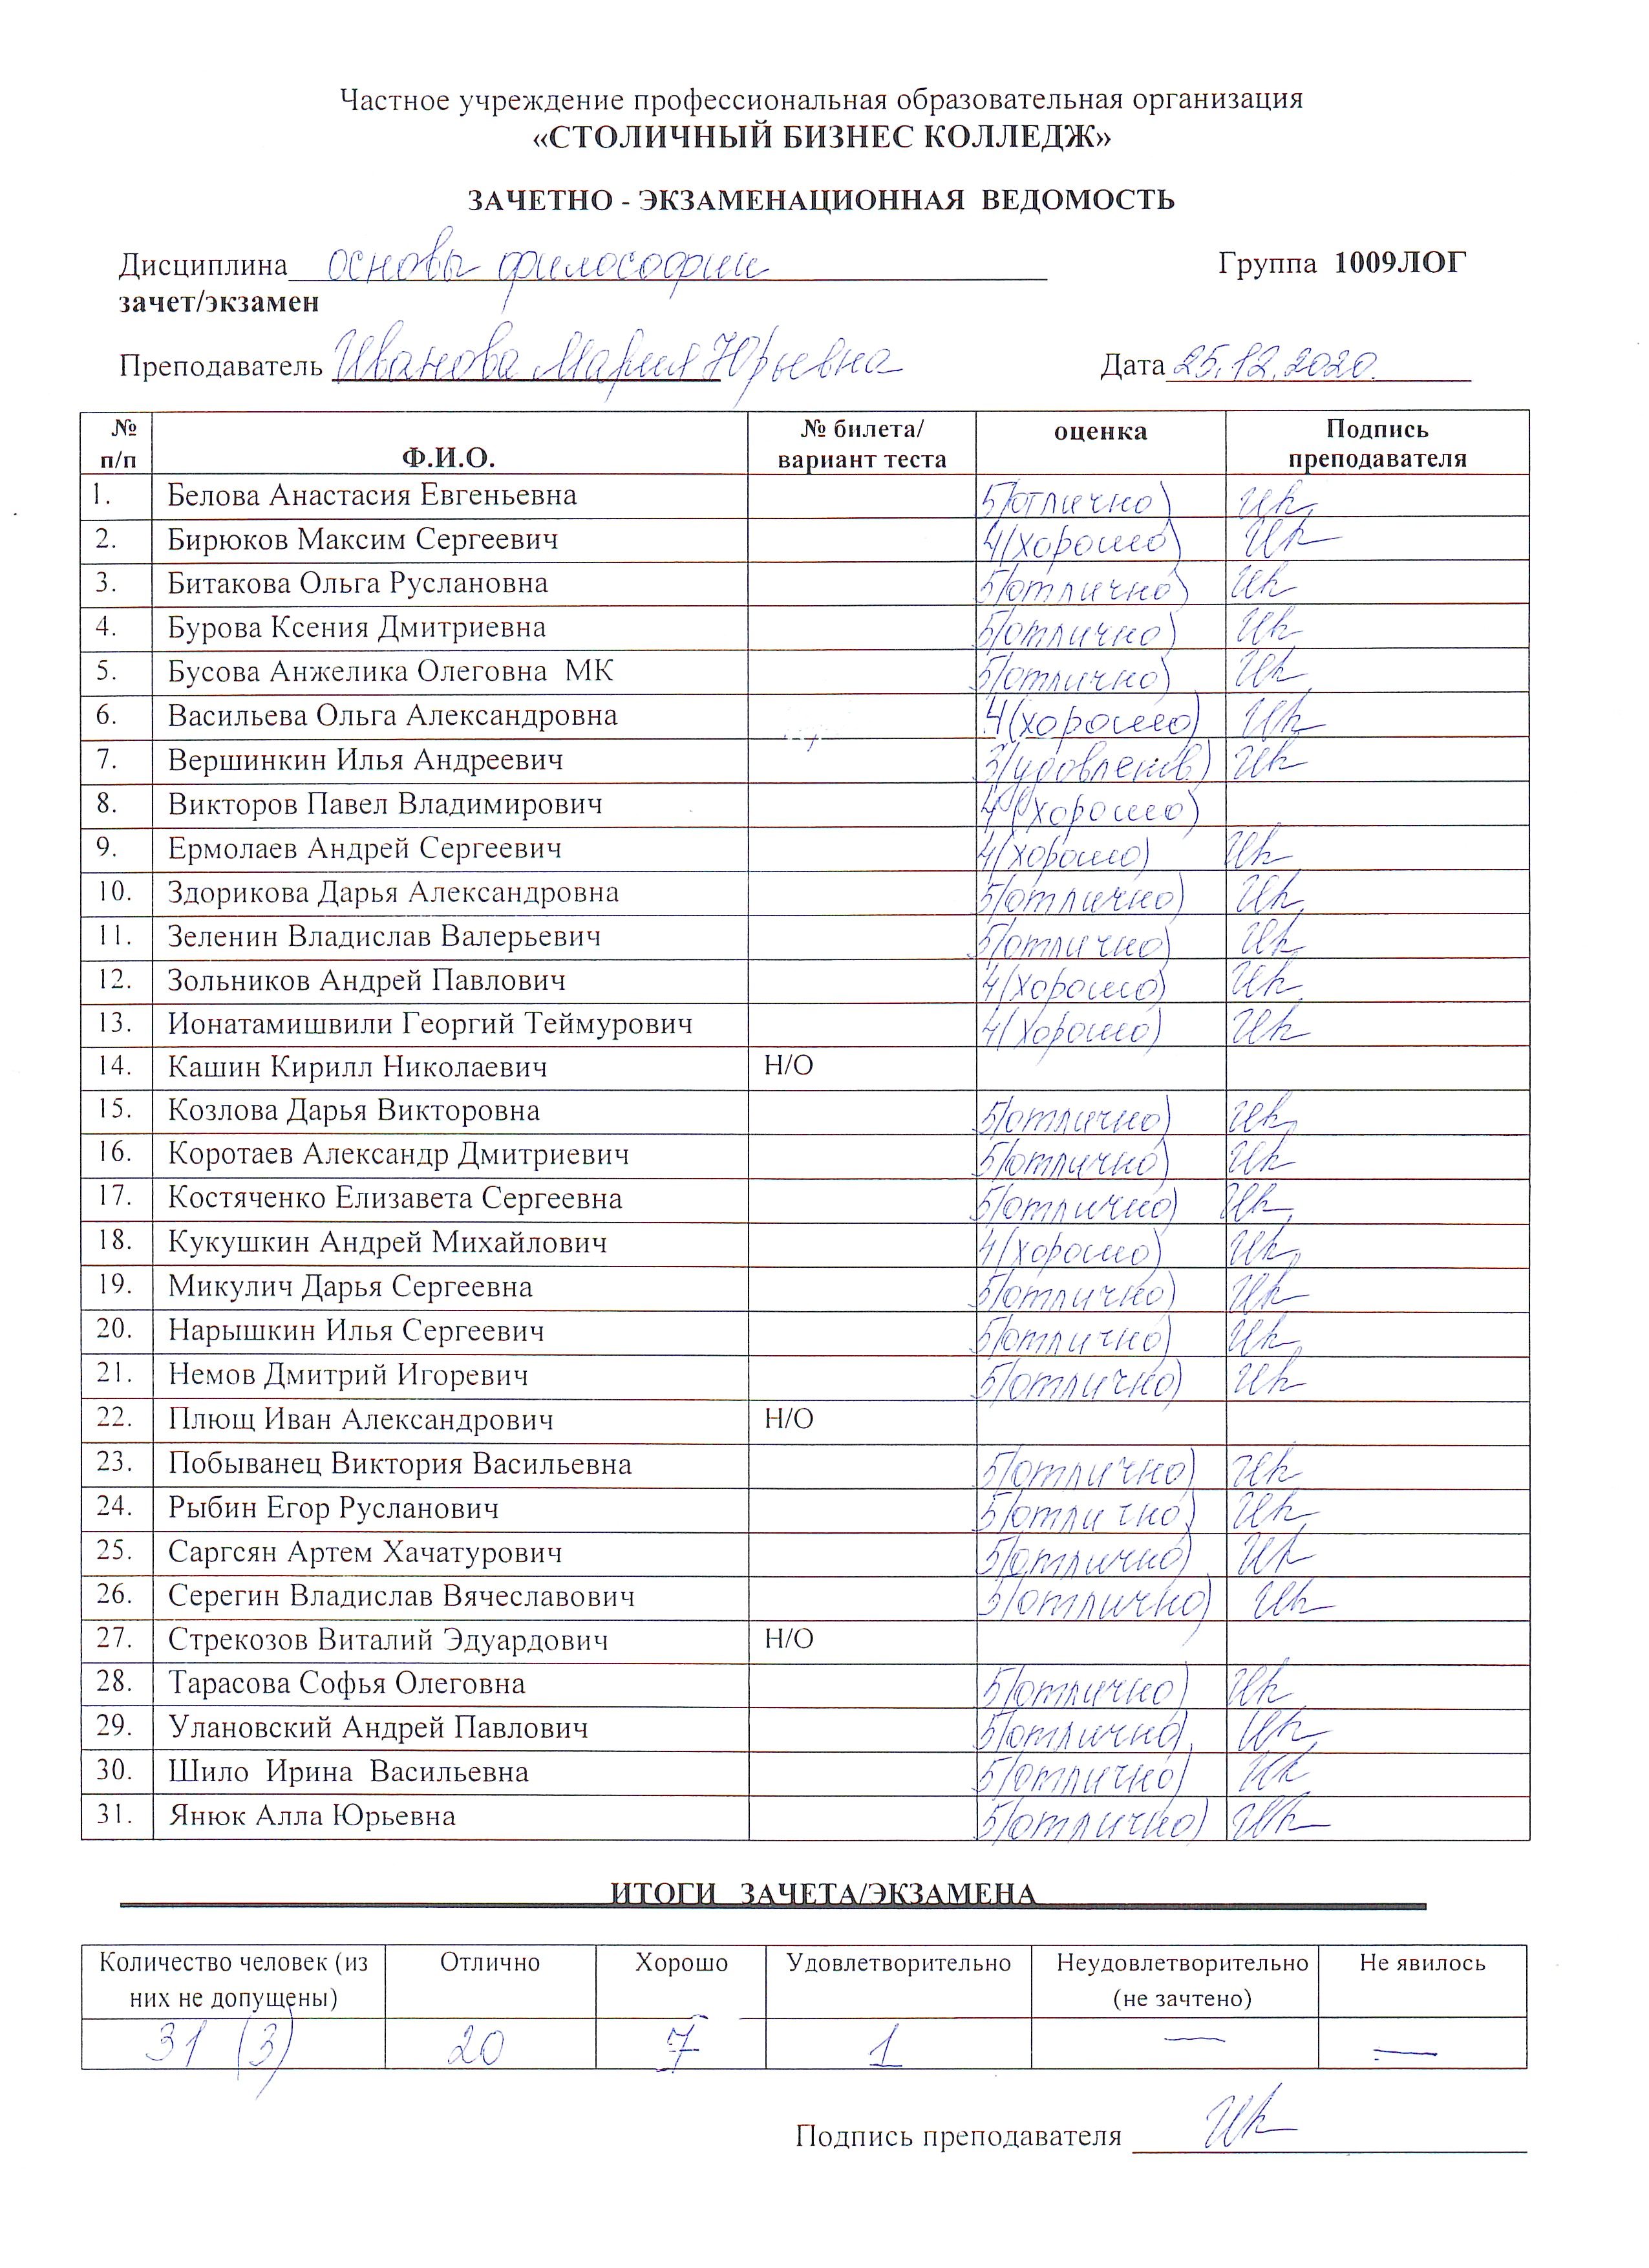 Частное учреждение профессиональная образовательная организация
«СТОЛИЧНЫЙ БИЗНЕС КОЛЛЕДЖ»
ЗАЧЕТНО - ЭКЗАМЕНАЦИОННАЯ ВЕДОМОСТЬ
Дисциплина основы философии Группа 1009ЛОГ
зачет/экзамен
Преподаватель Иванова Мария Юрьевна Дата 25.12.2020
№ п/п Ф.И.О. № билета/ вариант теста оценка Подпись преподавателя
1. Белова Анастасия Евгеньевна 5(отлично)
2. Бирюков Максим Сергеевич 4(хорошо)
3. Битакова Ольга Руслановна 5(отлично)
4. Бурова Ксения Дмитриевна 5(отлично)
5. Бусова Анжелика Олеговна МК 5(отлично)
6. Васильева Ольга Александровна 4(хорошо)
7. Вершинкин Илья Андреевич 3(удовлетв)
8. Викторов Павел Владимирович 4(хорошо)
9. Ермолаев Андрей Сергеевич 4(хорошо)
10. Здорикова Дарья Александровна 5(отлично)
11. Зеленин Владислав Валерьевич 5(отлично)
12. Зольников Андрей Павлович 4(хорошо)
13. Ионатамишвили Георгий Теймурович 4(хорошо)
14. Кашин Кирилл Николаевич Н/О
15. Козлова Дарья Викторовна 5(отлично)
16. Коротаев Александр Дмитриевич 5(отлично)
17. Костяченко Елизавета Сергеевна 5(отлично)
18. Кукушкин Андрей Михайлович 4(хорошо)
19. Микулич Дарья Сергеевна 5(отлично)
20. Нарышкин Илья Сергеевич 5(отлично)
21. Немов Дмитрий Игоревич 5(отлично)
22. Плющ Иван Александрович Н/О
23. Побыванец Виктория Васильевна 5(отлично)
24. Рыбин Егор Русланович 5(отлично)
25. Саргсян Артем Хачатурович 5(отлично)
26. Серегин Владислав Вячеславович 5(отлично)
27. Стрекозов Виталий Эдуардович Н/О
28. Тарасова Софья Олеговна 5(отлично)
29. Улановский Андрей Павлович 5(отлично)
30. Шило Ирина Васильевна 5(отлично)
31. Янюк Алла Юрьевна 5(отлично)
ИТОГИ ЗАЧЕТА/ЭКЗАМЕНА
Количество человек (из них не допущены) Отлично Хорошо Удовлетворительно Неудовлетворительно (не зачтено) Не явилось
31 (3) 20 7 1 — —
Подпись преподавателя